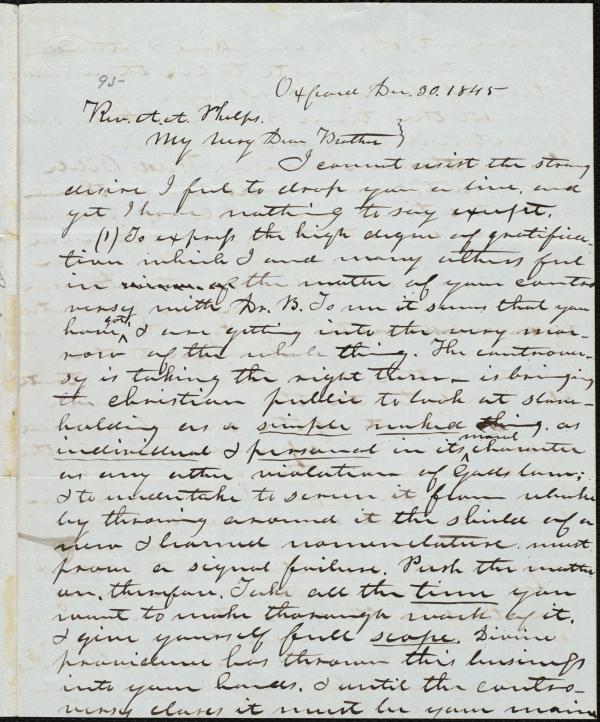 95-
Oxford Dec. 30. 1845
Rev. A. A. Phelps.
My very Dear Brother }
I cannot resist the strong
desire I feel to drop you a line, and
yet I have nothing to say except.
(1) To express the high degree of gratifica-
tion which I and many others feel
in the matter of your contro
versy with Dr. B. To me it seems that you
have got, & are getting into the very mar-
row of the whole thing. The controver-
sy is taking the right turn - is bringing
the Christian public to look at slave-
holding as a simple naked thing. as
individual & personal in its moral character
as any other violation of Gods law;
& to undertake to screen it from rebuke
by throwing around it the shield of a
new & learned nomenclature. must
prove a signal failure. Push the matter
on, therefore. Take all the time you
want to make thorough work of it.
& give yourself full scope. Divine
providence has thrown this business
into your hands. & until the contro-
versy closes it must be your main